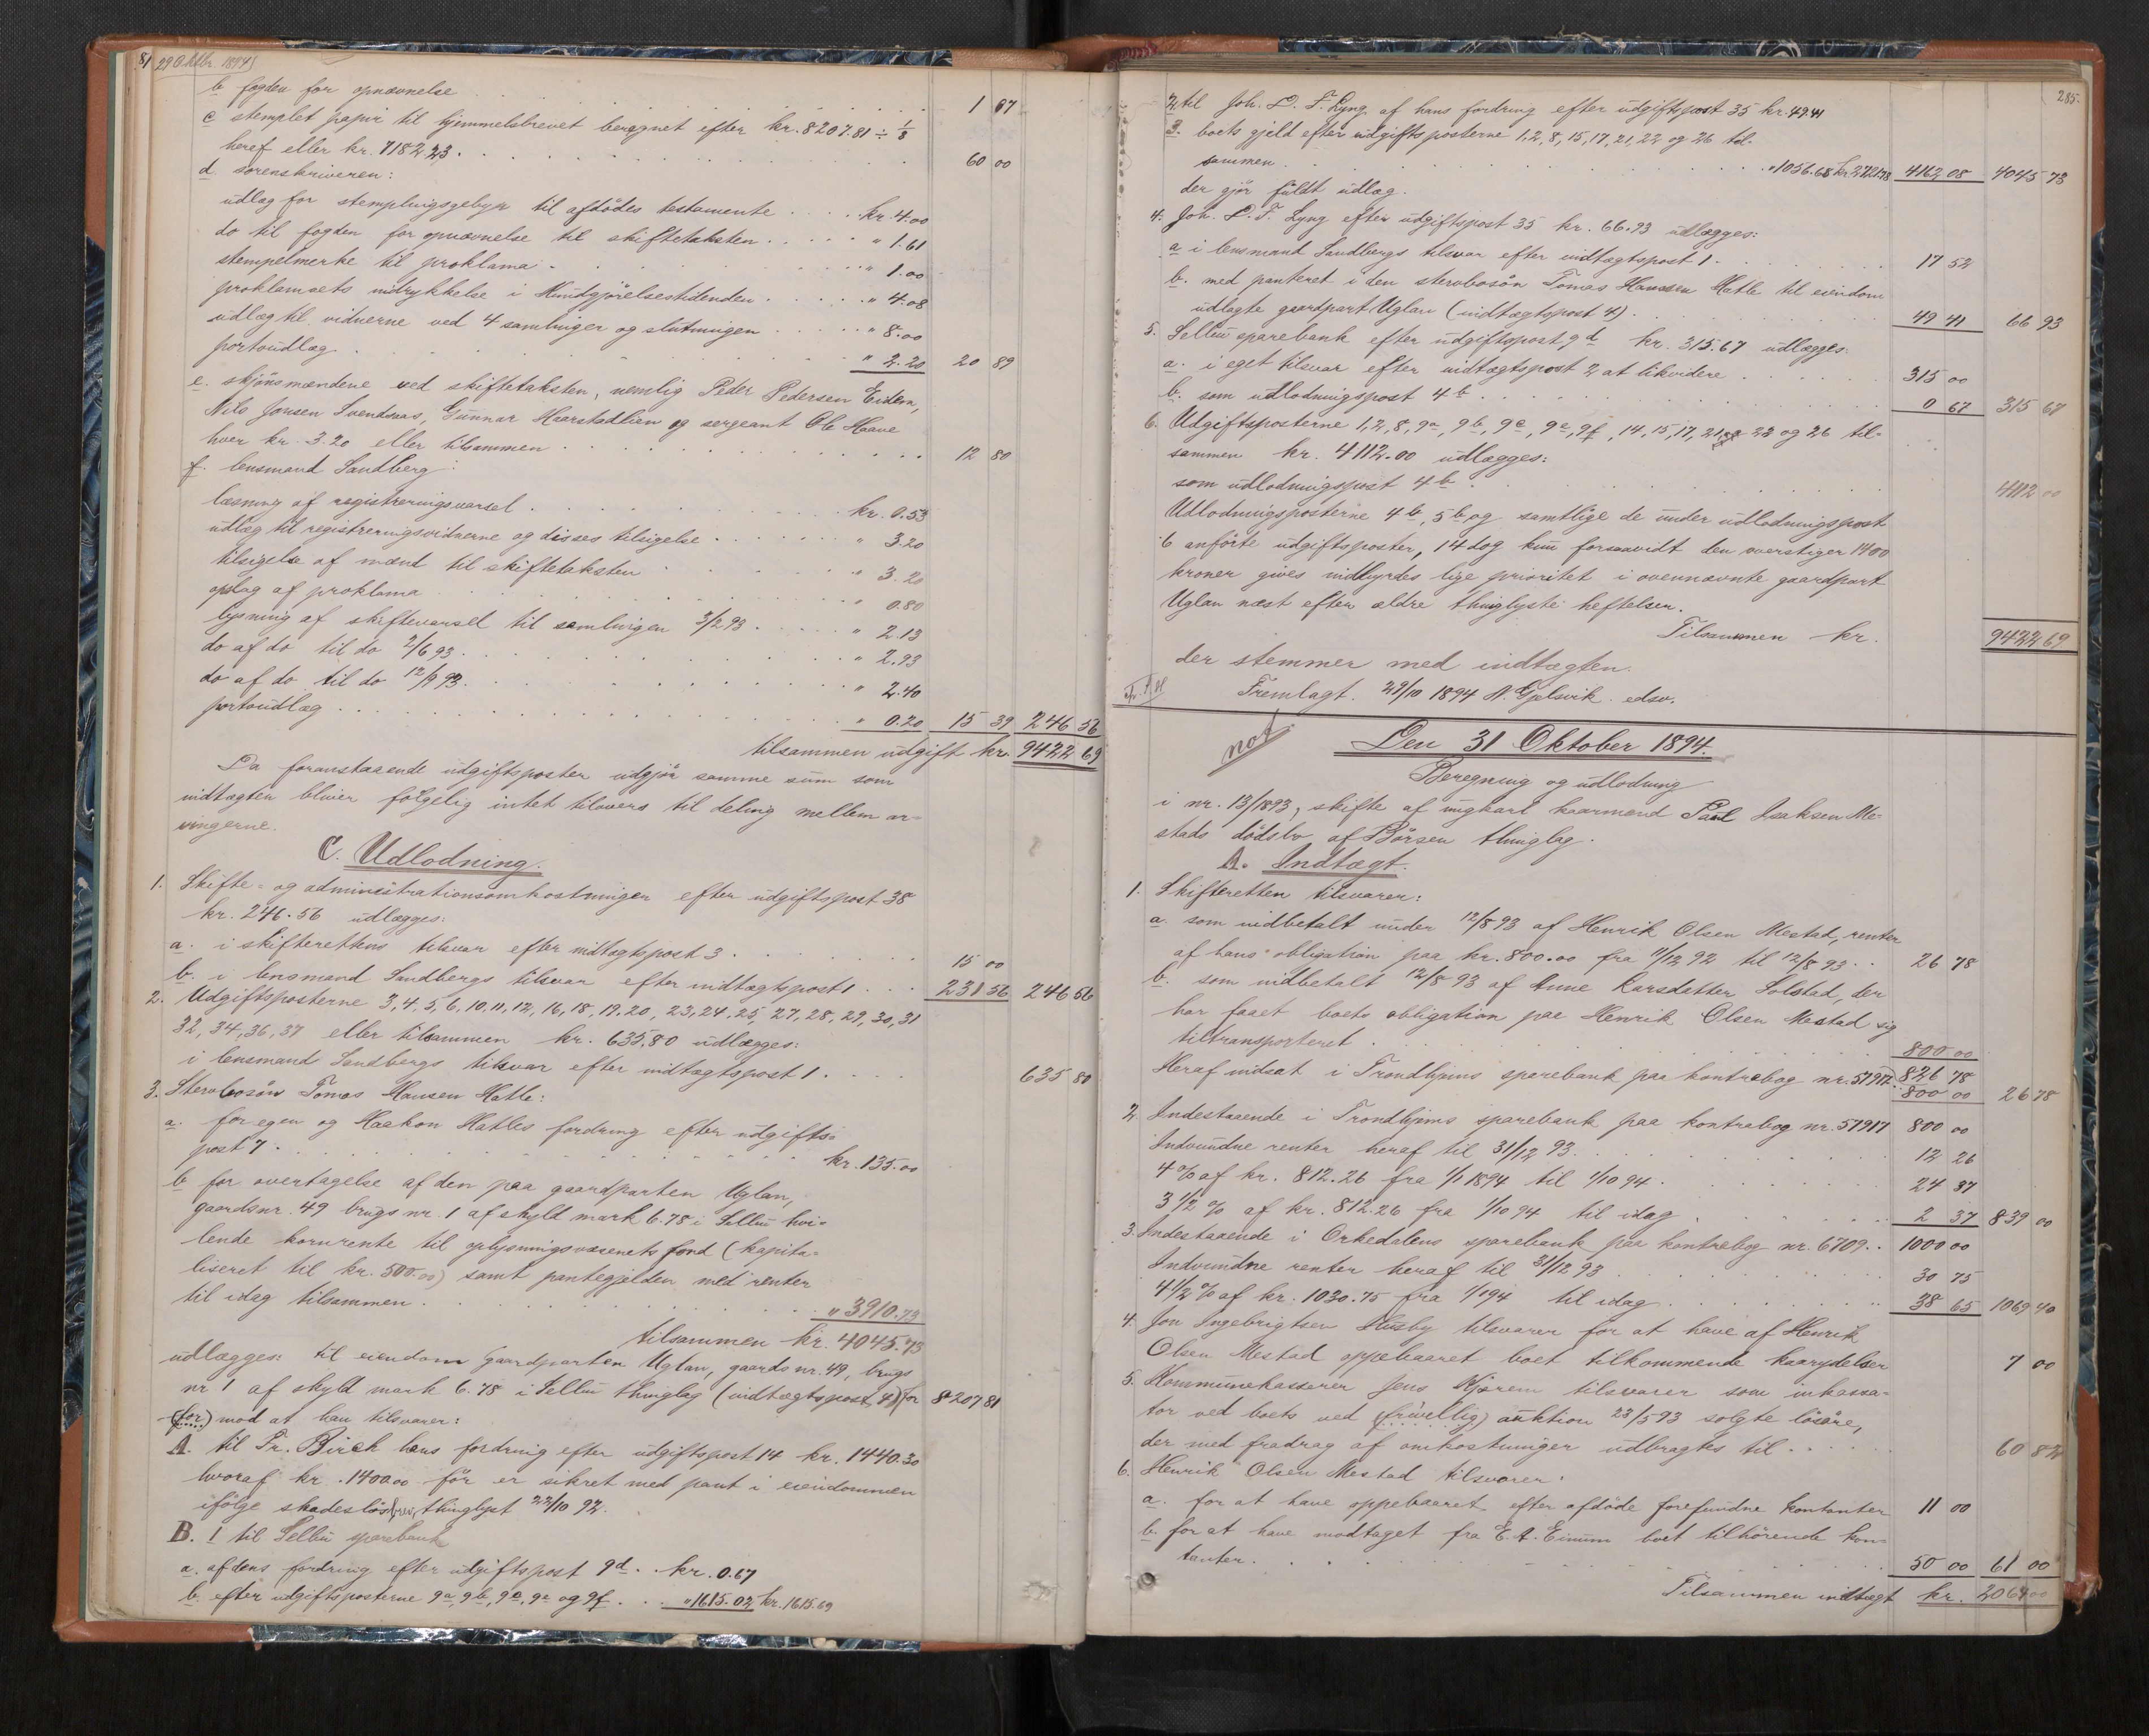 29 Oktbr. 1894
b fogden for opnævnelse 1 67
c stemplet papir til hjemmelsbrevet beregnet efter kr. 8207.81 ÷ 1/8
heraf eller kr. 7182.23. 60 00
d sorenskriveren:
udlæg for stemplingsgebyr til afdödes testamente kr. 4.00
do til fogden for opnævnelse til skiftetaksten " 1.61
stempelmerke til proklama " 1.00
proklamaets indrykkelse i Kundgjörelsestidenden " 4.08
udlæg til vidnerne ved 4 samlinger og slutningen " 8.00
portoudlæg " 2.20 20 89
e. skjönsmændene ved skiftetaksten, nemlig Peder Pedersen Eidem,
Nils Jonsen Svendsaas, Gunnar Haarstadlien og sergeant Ole Haave
hver kr. 3.20 eller tilsammen 12 80
f. lensmand Sandberg:
læsning af registreringsvarsel kr. 0.53
udlæg til registreringsvidnerne og disses tilsigelse " 3.20
tilsigelse af mænd til skiftetaksten " 3.20
opslag af proklama " 0.80
lysning af skiftevarsel til samlingen 3/2 93 " 2.13
do af do til do 2/6 93 " 2.93
do af do til do 12/9 93 " 2.40
portoudlæg " 0.20 15 39 246 56
tilsammen udgift kr. 9422 69
Da foranstaaende udgiftsposter udgjör samme sum som
indtægten bliver fölgelig intet tilovers til deling mellem ar-
vingerne.
C. Udlodning.
1. Skifte- og administrationsomkostninger efter udgiftspost 38
kr. 246.56 udlægges:
a. i skifterettens tilsvar efter indtægtspost 3 15 00
b. i lensmand Sandbergs tilsvar efter indtægtspost 1 231 56 246 56
2. Udgiftsposterne 3, 4, 5, 6, 10, 11, 12, 16, 18, 19, 20, 23, 24, 25, 27, 28, 29, 30, 31
32, 34, 36, 37 eller tilsammen kr. 635.80 udlægges:
i lensmand Sandbergs tilsvar efter indtægtspost 1. 635 80
3. Stervbosön Tomas Hansen Hatle:
a. for egen og Haakon Hatles fordring efter udgifts-
post 7. kr. 135.00
b for overtagelse af den paa gaardparten Uglan,
gaardsnr. 49 brugsnr. 1 af skyld mark 6.78 i Selbu hvi-
lende kornrente til oplysningsvæsenets fond (kapita-
liseret til kr. 500.00) samt pantegjelden med renter
til idag tilsammen " 3910.73
tilsammen kr. 4045.73
udlægges: til eiendom gaardparten Uglan, gaardsnr. 49, brugs
nr. 1 af skyld mark 6.78 i Selbu thinglag (indtægtspost 4) for 8207 81
(for) mod at han tilsvarer:
A. til Fr. Birch hans fordring efter udgiftspost 14 kr. 1440.30
hvoraf kr. 1400.00 för er sikret med pant i eiendommen
ifölge skadeslösbrev, thinglyst 22/10 92.
B. 1 til Selbu sparebank
a. af dens fordring efter udgiftspost 9d kr. 0.67
b. efter udgiftsposterne 9a, 9b, 9c, 9e og 9f " 1615.02 kr. 1615.69
285.
2 til Joh. D. F. Lyng af hans fordring efter udgiftspost 35 kr. 49.41
3. boets gjeld efter udgiftsposterne 1, 2, 8, 15, 17, 21, 22 og 26 til-
sammen " 1056.68 kr. 2721.78 4162 08 4045 73
der gjör fuldt udlæg.
4. Joh. D. F. Lyng efter udgiftspost 35 kr. 66.93 udlægges:
a i lensmand Sandbergs tilsvar efter indtægtspost 1. 17 52
b. med panteret i den stervbosön Tomas Hansen Hatle til eiendom
udlagte gaardpart Uglan (indtægtspost 4) 49 41 66 93
5. Selbu sparebank efter udgiftspost 9d kr. 315.67 udlægges:
a. i eget tilsvar efter indtægtspost 2 at likvidere 315 00
b. som udlodningspost 4b 0 67 315 67
6. Udgiftsposterne 1, 2, 8, 9a, 9b, 9c, 9e, 9f, 14, 15, 17, 21, 22 og 26 til-
sammen kr. 4112.00 udlægges:
som udlodningspost 4b 4112 00
Udlodningsposterne 4b, 5b og samtlige de under udlodningspost
6 anförte udgiftsposter, 14 dog kun forsaavidt den overstiger 1400
kroner gives indbyrdes lige prioritet i ovennævnte gaardpart
Uglan næst efter ældre thinglyste heftelser.
Tilsammen kr. 9422 69
der stemmer med indtægten.
Fremlagt. 29/10 1894 N. Gjelsvik. edsv.
not
Den 31 Oktober 1894.
Beregning og udlodning
i nr. 13/1893, skifte af ungkarl kaarmand Paul Isaksen Me-
stads dödsbo af Börsen thinglag.
A. Indtægt.
1. Skifteretten tilsvarer:
a. som indbetalt under 12/8 93 af Henrik Olsen Mestad, renter
af hans obligation paa kr. 800.00 fra 11/12 92 til 12/8 93 26 78
b. som indbetalt 12/8 93 af Anne Larsdatter Solstad, der
har faaet boets obligation paa Henrik Olsen Mestad sig
tiltransporteret 800 00
826 78
Heraf indsat i Trondhjems sparebank paa kontrabog nr. 57917 800 00 26 78
2. Indestaaende i Trondhjems sparebank paa kontrabog nr. 57917 800 00
Indvundne renter heraf til 31/12 93 12 26
4 % af kr. 812.26 fra 1/1 1894 til 1/10 94 24 37
3 1/2 % af kr. 812.26 fra 1/10 94 til idag 2 37 839 00
3. Indestaaende i Orkedalens sparebank paa kontrabog nr. 6709 1000 00
Indvundne renter heraf til 31/12 93 30 75
4 1/2 % af kr. 1030.75 fra 1/1 94 til idag 38 65 1069 40
4. Jon Ingebrigtsen Husby tilsvarer for at have af Henrik
Olsen Mestad oppebaaret boet tilkommende kaarydelser 7 00
5. Kommunekasserer Jens Kjörem tilsvarer som inkassa-
tor ved boets ved (frivillig) auktion 23/5 93 solgte lösöre,
der med fradrag af omkostninger udbragtes til 60 82
6. Henrik Olsen Mestad tilsvarer:
a. for at have oppebaaret efter afdöde forefundne kontanter 11 00
b. for at have modtaget fra E. A. Einum boet tilhörende kon-
tanter 50 00 61 00
Tilsammen indtægt kr. 2064 00